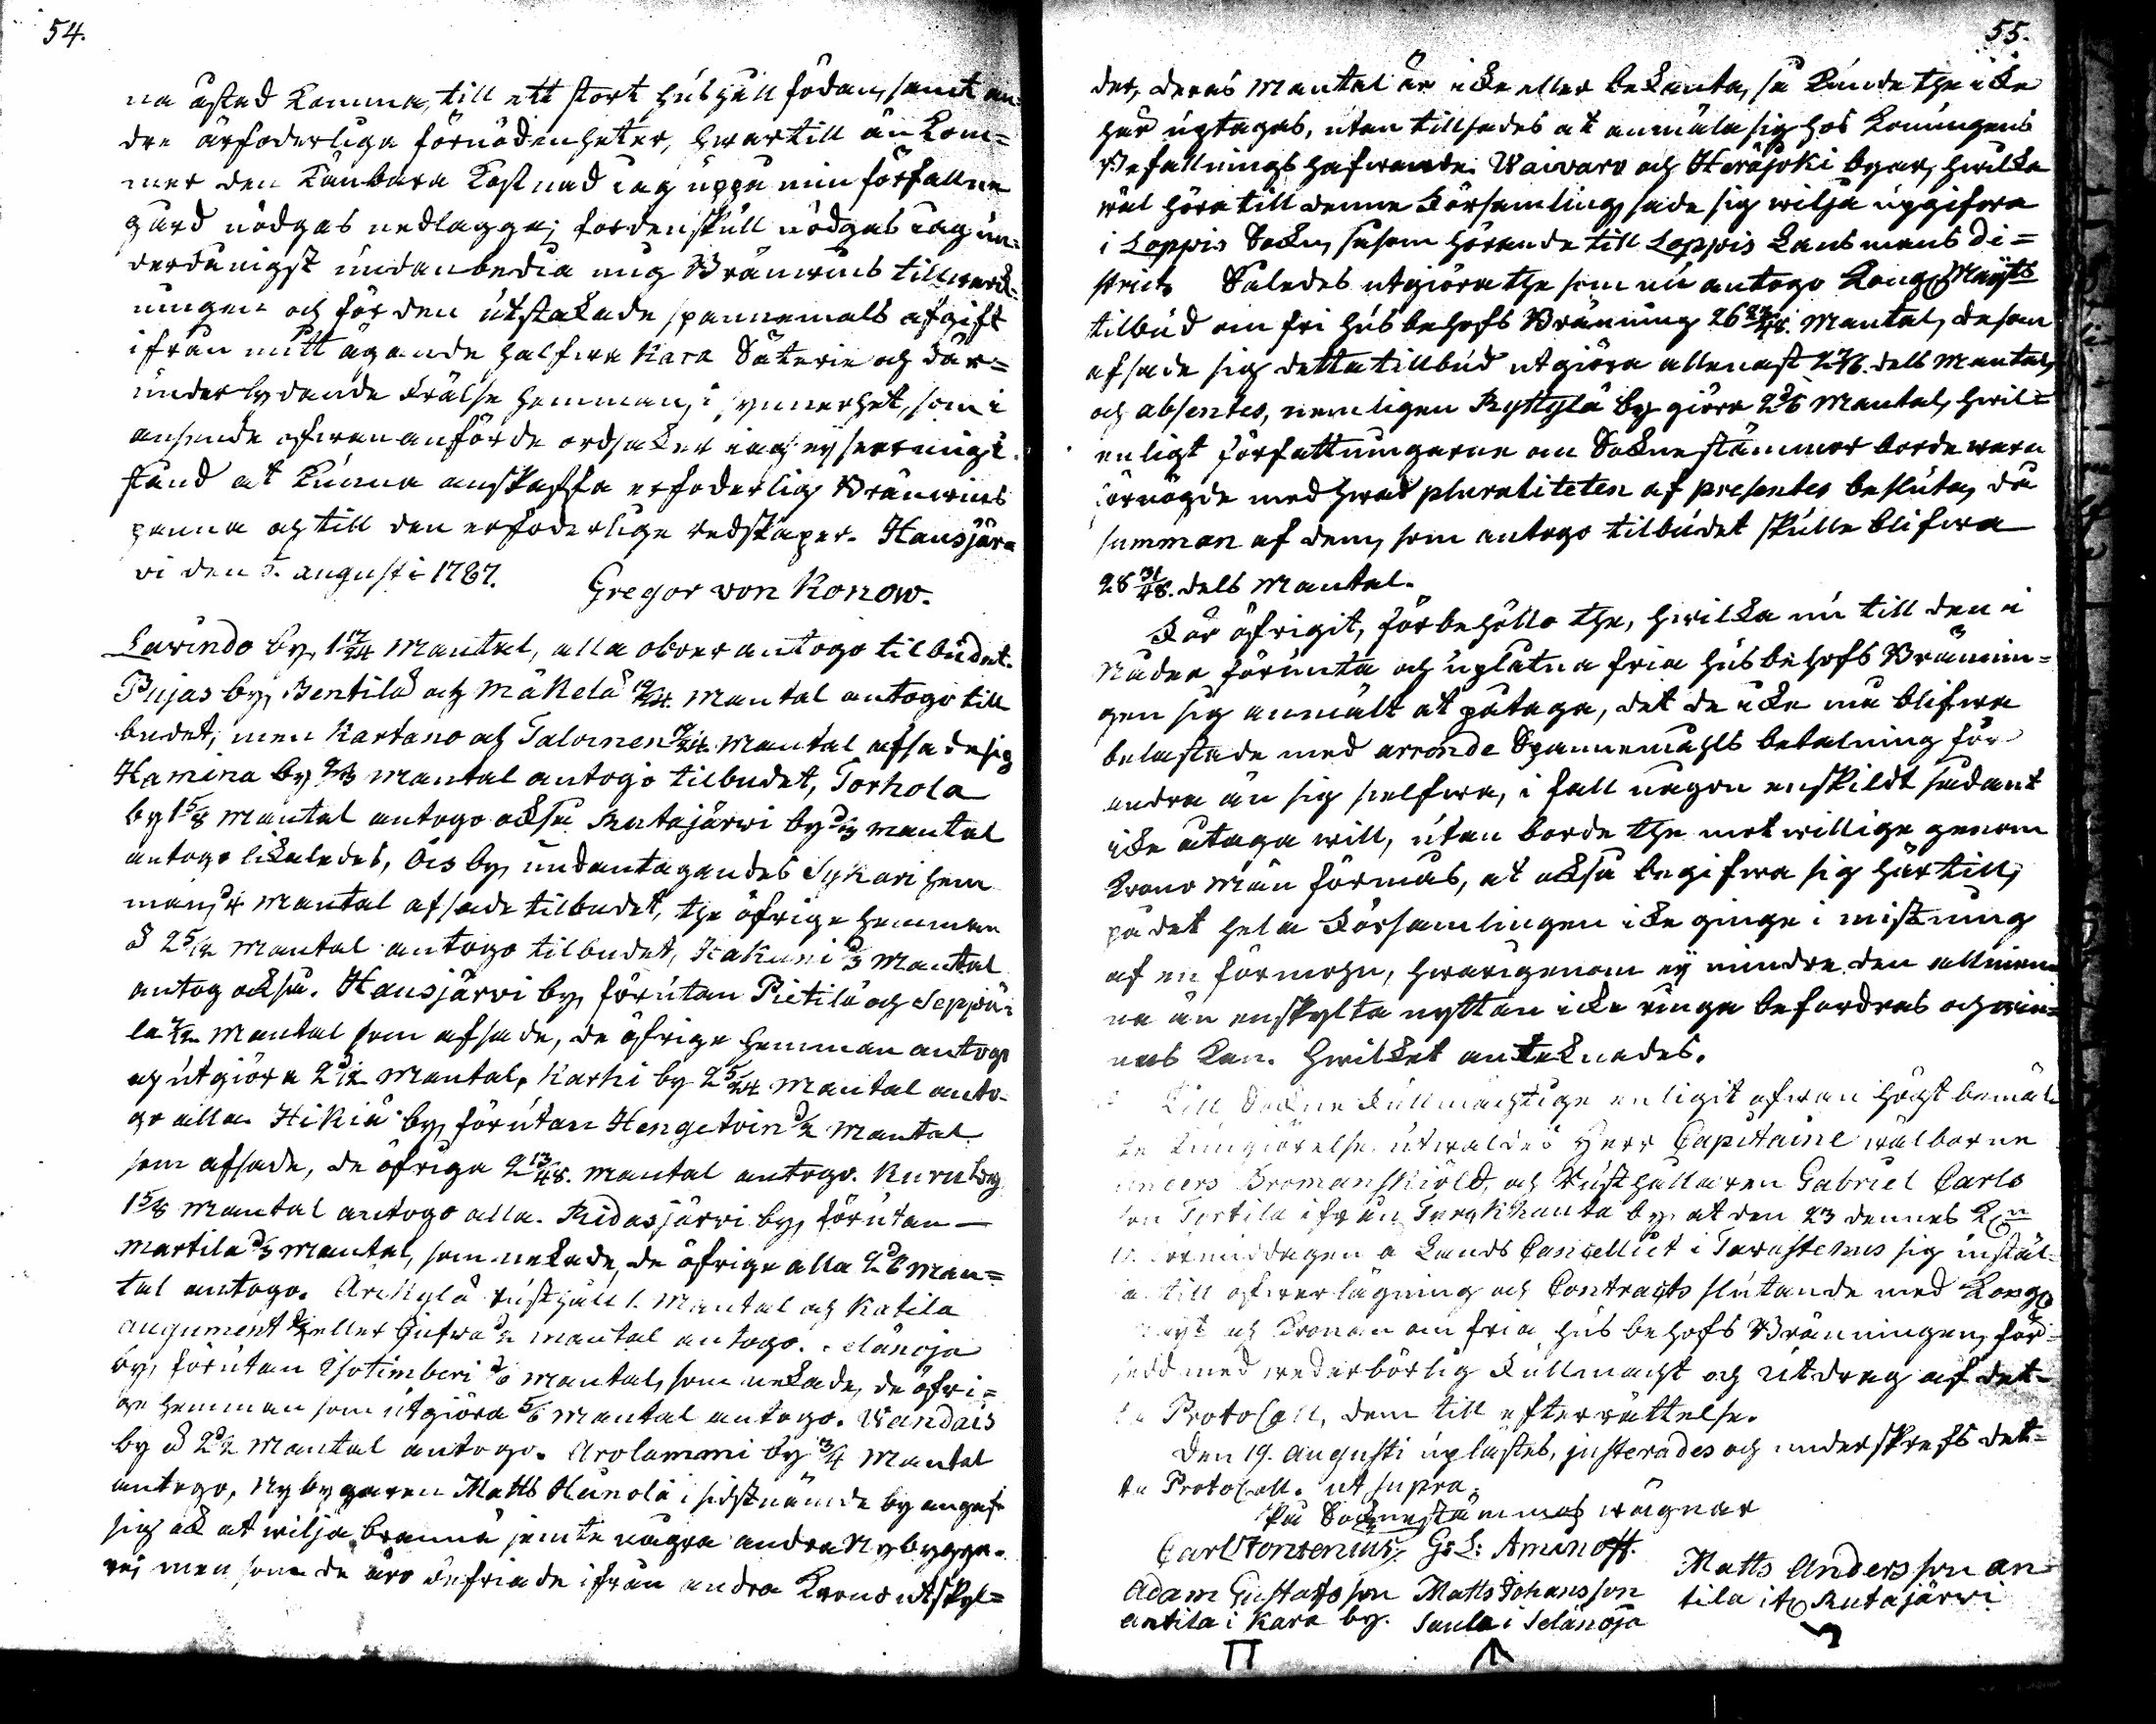 54.
na åstad komma, till ett stort hushåll födan, samt an=
dra ärfoderliga förnödenheter, hwartill än kom=
mer den kånbara kostnad iag uppå min förfallne
gård nödgas nedlägga; fordenskull nödgas iag un=
derdånigst undanbedia mig Bränwins tillwerk=
ningen och för den utstakade spannemåls afgift
ifrån mitt ägande halfwa Kara Säterie och där=
under lydande Frälse hemman, i synnerhet, som i
anseende ofwananförde ordsaker iag ej ser mig i
stånd at kunna anskaffa erfoderlig Bränwins
panna och till den erfoderlige redskaper. Hausjär=
vi den 5. augusti 1787.
Gregor von Konow.
Lavindo by, 1 17/24 Mantal, alla åboer antogo tilbudet.
Pujas by, Bentilä och Mäkelä 19/24 Mantal antogo till
budet, men Kartano och Talvinen 9/24 Mantal afsade sig
Hamina by 2/3 Mantal antogo tilbudet, Torhola
by 1 5/8 Mantal antogo också Rutajärwi by 1/3 Mantal
antogo likaledes, Ois by, undantagandes Sykäri hem
man, 1/4 Mantal afsade tilbudet, the öfrige hemman
å 2 5/12 Mantal antogo tilbudet, Kakuni 1/3 Mantal
antog också. Hausjärvi by, förutan Pietilä och Seppä=
lä 7/12 Mantal som afsade, de öfrige hemman antogo
och utgiöra 2 1/12 Mantal, Karhi by 2 5/24 Mantal anto=
go alla. Hikiä by, förutan Hengetvin 1/2 Mantal
som afsade, de öfriga 2 13/48. Mantal antogo. Kuru by
1 5/8 Mantal antogo alla. Ridasjärvi by, förutan
Martila 1/3 Mantal, som nekade, de öfrige alla 2 1/6 Man=
tal antogo. Arikylä rusthåll 1. Mantal och Katila
augument eller Gufwa 1/2 mantal antogo. Selänoja
by, förutan Isotimberi 1/6 Mantal, som nekade, de öfri=
ge hemman som utgiöra 5/6 Mantal antogo. Vandais
by å 2 1/2 Mantal antogo. Arolammi by 3/4 Mantal
antogo, Nybyggaren Matts Hunola i sidstnämde by angaf
sig ock at wilja bränna jemte några andra Nybygga=
re; men som de äro befriade ifrån andra Krono utskyl=
55.
der, deras Mantal är icke eller bekanta, så kunde the icke
här uptagas, utan tillsades at anmäla sig hos Konungens
Befallningshafwande. Waivaro och Heräjoki byar, hwilka
wäl höra till denne Församling, sade sig wilja upgifwa
i Loppis Sokn, såsom hörande till Loppis Länsmans di=
strict. Således utgiöra the som nu antogo Kongl Mayts
tilbud om fri husbehofs Bränning 26 23/48. Mantal, de som
afsade sig detta tillbud utgiöra allenast 2 7/16. dels Mantal,
och absentes, nemligen Ryttylä by giöra 2 1/6 Mantal, hwil=
enligt författningarne om Soknestämmor borde wara
förnögde med hwad pluraliteten af presentes besluta, då
summan af dem, som antogo tilbudet skulle blifwa
28 31/48. dels Mantal.
För öfrigit, förbehöllo the, hwilka nu till den i
Nåder förunta och uplåtna fria husbehofs Brännin=
gen sig anmält at påtaga, det de icke må blifwa
belastade med arronde Spannemåhls betalning för
andra än sig sielfwa, i fall någon enskildt sådant
icke åtaga will, utan borde the motwillige genom
Krono Män förmås, at också begifwa sig härtill,
på det hela Församlingen icke ginge i mistning
af en förmohn, hwarigenom ej mindre den allmän=
na än enskylta nyttan icke ringa befordras och win=
nas kan. Hwilket antecknades.
Till Sockne Fullmägtige enligit ofwan högt bemäl
te kungiörelse utwaldes Herr Capitaine wälborne
Anders Bromanskiöld, och Rusthållaren Gabriel Carls
son Tortila ifrån Turckhauta by, at den 23 dennes Kl
förmiddagen å Lands Cancelliet i Tavastehus sig instäl=
la till öfwerlägning och Contracts slutande med Kongl
Mayt och Kronan om fria husbehofs Bränningen, för=
sedd med wederbörlig Fullmacht och utdrag af det=
ta Protocoll, dem till efterrättelse.
Den 19. Augusti uplästes, justerades och underskrefs det=
ta Protocoll. ut supra.
På Soknestämmos wägnar
Carl Fontenius. G: L: Aminoff.
Adam Gustafsson Matts Johansson Matts Andersson An=
Antila i Kara by. Saula i Selänoja tila i Rutajärvi